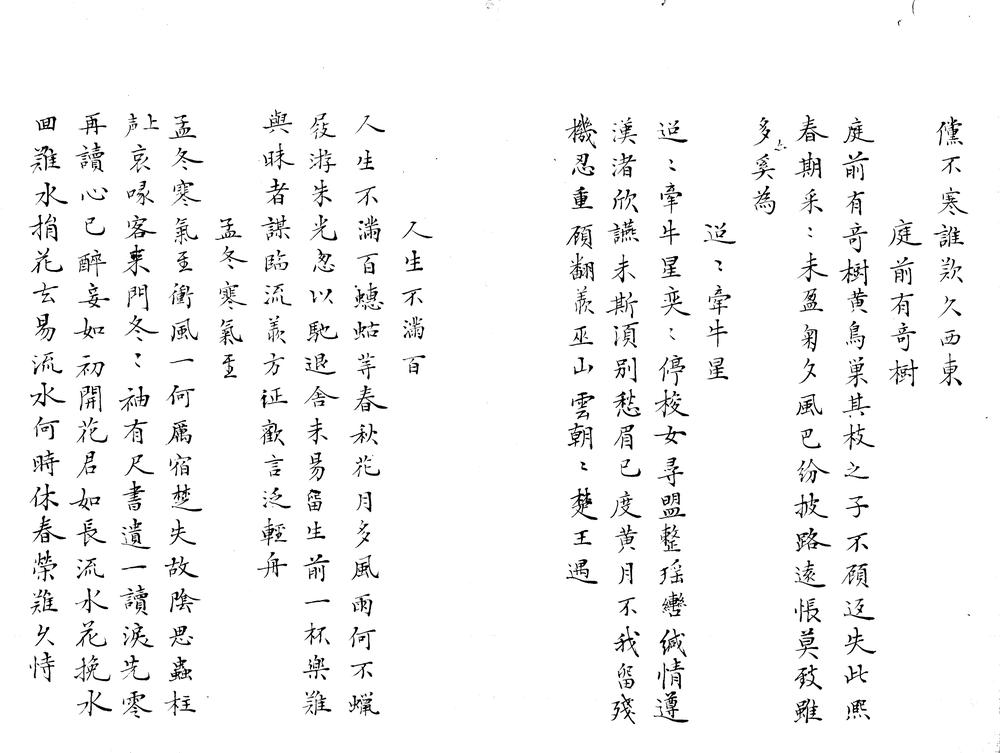 儻不寒誰歎久西東
庭前有奇樹
庭前有奇樹黄鳥巢其枝之子不顧返失此熙
春期采〻未盈匊夕風已紛披路遠悵莫致雖
多奚為
迢〻牽牛星
迢〻牽牛星奕〻停梭女尋盟整瑶轡緘情遵
漢渚欣讌未斯須别愁眉已度黄月不我留殘
機忍重顧翻羨巫山雲朝〻楚王遇
人生不滿百
人生不滿百蟪蛄等春秋花月多風雨何不蠟
屐游朱光忽以馳退舍未易留生前一杯樂難
與昧者謀臨流羨方証歡言泛輕舟
孟冬寒氣至
孟冬寒氣至衝風一何厲宿楚失故陰思蟲柱
上声哀喙客来門冬〻袖有尺書遺一讀淚先零
再讀心已醉妾如初開花君如長流水花挽水
回難水捐花去易流水何時休春榮難久恃